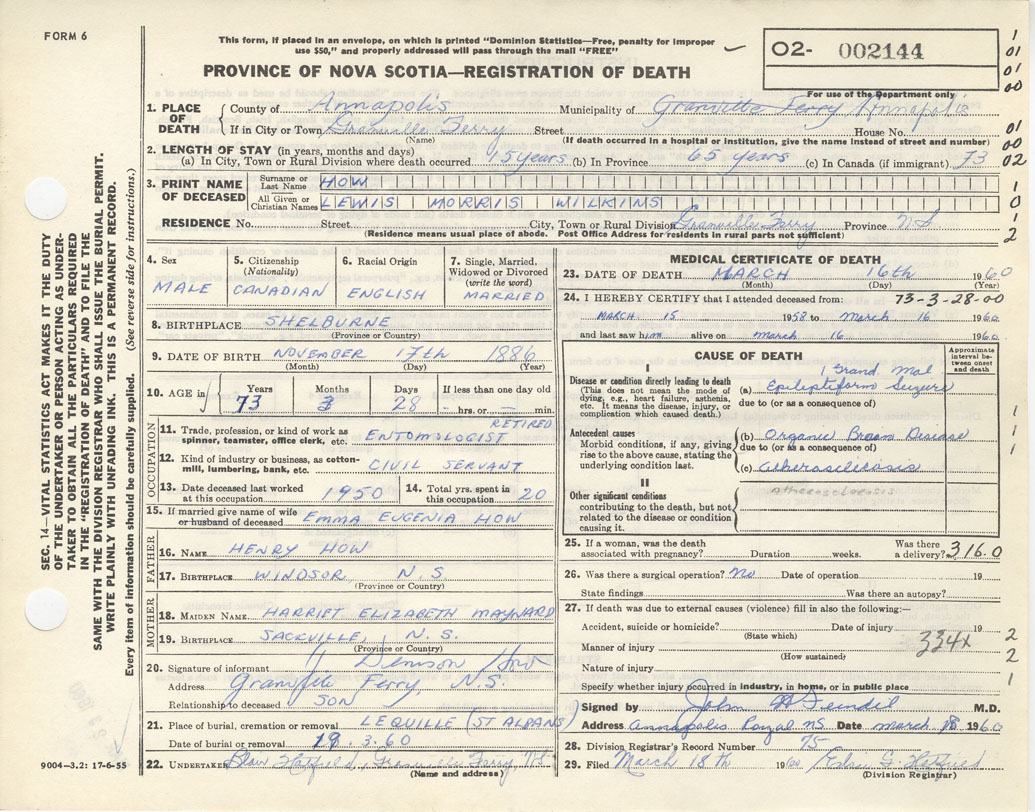 FORM 6
This form, if placed in an envelope, on which is printed "Dominion Statistics—Free, penalty for improper
use $50," and properly addressed will pass through the mail "FREE"
O2- 002144
For use of the Department only
PROVINCE OF NOVA SCOTIA—REGISTRATION OF DEATH
1
01
01
00
1. PLACE OF DEATH County of Annapolis Municipality of Granville Ferry Annapolis
If in City or Town Granville Ferry Street House No. 01
(Name) (If death occurred in a hospital or institution, give the name instead of street and number) 00
2. LENGTH OF STAY (in years, months and days)
(a) In City, Town or Rural Division where death occurred 45 years (b) In Province 65 years (c) In Canada (if immigrant) 73 02
3. PRINT NAME OF DECEASED Surname or Last Name HOW 1
All Given or Christian Names LEWIS MORRIS WILKINS 0
1
RESIDENCE No. Street City, Town or Rural Division Granville Ferry Province NS 2
(Residence means usual place of abode. Post Office Address for residents in rural parts not sufficient)
4. Sex MALE
5. Citizenship (Nationality) CANADIAN
6. Racial Origin ENGLISH
7. Single, Married, Widowed or Divorced (write the word) MARRIED
8. BIRTHPLACE SHELBURNE
(Province or Country)
9. DATE OF BIRTH NOVEMBER 17th 1886
(Month) (Day) (Year)
10. AGE in Years Months Days If less than one day old
73 3 28 - hrs. or - min.
OCCUPATION
RETIRED
11. Trade, profession or kind of work as spinner, teamster, office clerk, etc. ENTOMOLOGIST
12. Kind of industry or business, as cotton-mill, lumbering, bank, etc. CIVIL SERVANT
13. Date deceased last worked at this occupation 1950
14. Total yrs. spent in this occupation 20
15. If married give name of wife or husband of deceased EMMA EUGENIA HOW
FATHER
16. NAME HENRY HOW
17. BIRTHPLACE WINDSOR N.S.
(Province or Country)
MOTHER
18. MAIDEN NAME HARRIET ELIZABETH MAYNARD
19. BIRTHPLACE SACKVILLE, N.S.
(Province or Country)
20. Signature of informant Denison How
Address Granville Ferry, N.S.
Relationship to deceased SON
21. Place of burial, cremation or removal LEQUILLE (ST ALBANS)
Date of burial or removal 19.3.60
22. UNDERTAKER Blair Hatfield, Granville Ferry, NS
(Name and address)
MEDICAL CERTIFICATE OF DEATH
23. DATE OF DEATH MARCH 16th 1960
(Month) (Day) (Year)
24. I HEREBY CERTIFY that I attended deceased from: 73-3-28-00
MARCH 15 1958 to March 16 1960
and last saw him alive on march 16 1960
CAUSE OF DEATH
Approximate interval between onset and death
I
Disease or condition directly leading to death
(This does not mean the mode of dying, e.g., heart failure, asthenia, etc. It means the disease, injury, or complication which caused death.)
1 Grand Mal
(a) Epileptiform Seizure
due to (or as a consequence of)
Antecedent causes
Morbid conditions, if any, giving rise to the above cause, stating the underlying condition last.
(b) Organic Brain Disease
due to (or as a consequence of)
(c) atherosclerosis
1
1
1
II
Other significant conditions
contributing to the death, but not related to the disease or condition causing it.
Atherosclerosis
25. If a woman, was the death associated with pregnancy? Duration weeks. Was there a delivery? 316.0
26. Was there a surgical operation? No Date of operation 19
State findings Was there an autopsy?
27. If death was due to external causes (violence) fill in also the following:—
Accident, suicide or homicide? Date of injury 19 2
(State which)
Manner of injury 334x 2
(How sustained)
Nature of injury
Specify whether injury occurred in industry, in home, or in public place 1
Signed by M.D.
Address Annapolis Royal NS Date march 18 1960
28. Division Registrar's Record Number 75
29. Filed March 18th 1960
(Division Registrar)
SEC. 14—VITAL STATISTICS ACT MAKES IT THE DUTY
OF THE UNDERTAKER OR PERSON ACTING AS UNDER-
TAKER TO OBTAIN ALL THE PARTICULARS REQUIRED
IN THE "REGISTRATION OF DEATH" AND TO FILE THE
SAME WITH THE DIVISION REGISTRAR WHO SHALL ISSUE THE BURIAL PERMIT.
WRITE PLAINLY WITH UNFADING INK. THIS IS A PERMANENT RECORD.
Every item of information should be carefully supplied. (See reverse side for instructions.)
9004—3.2: 17-6-55